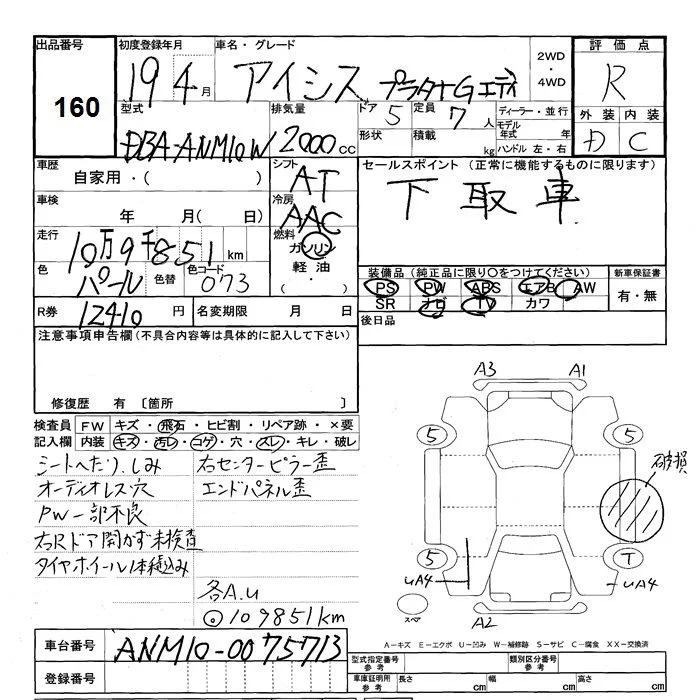 出品番号 160
初度登録年月 19 4月
車名・グレード アイシス プラタナGエディ
2WD・4WD
評価点 R
外装 D 内装 C
型式 DBA-ANM10W
排気量 2000cc
ドア 5 定員 7人
形状 積載 kg
ディーラー・並行
モデル年式 年
ハンドル 左・右
車歴 自家用・( )
シフト AT
セールスポイント (正常に機能するものに限ります)
下取車
車検 年 月( 日)
冷房 AAC
走行 10万9千851km
燃料 ガソリン・軽油・( )
色 パール 色替 色コード 073
装備品(純正品に限り○をつけてください)
PS PW ABS エアB AW
SR ナビ TV カワ
新車保証書 有・無
R券 12410円 名変期限 月 日
後日品
注意事項申告欄(不具合内容等は具体的に記入して下さい)
修復歴 有 〔箇所 〕
検査員記入欄
FW キズ・飛石・ヒビ割・リペア跡・×要
内装 キズ・汚レ・コゲ・穴・スレ・キレ・破レ
シートへたり、しみ 右センターピラー歪
オーディオレス穴 エンドパネル歪
PW一部不良
右Rドア開かず未検査
タイヤホイール1本積込み
各A.U
◎109851km
A3 A1
5 5
破損
5 T
UA4 UA4
スペア
A2
A－キズ E－エクボ U－凹み W－補修跡 S－サビ C－腐食 XX－交換済
車台番号 ANM10-0075713
登録番号
型式指定番号 参考 類別区分番号 参考
車庫証明用 参考 長さ cm 幅 cm 高さ cm